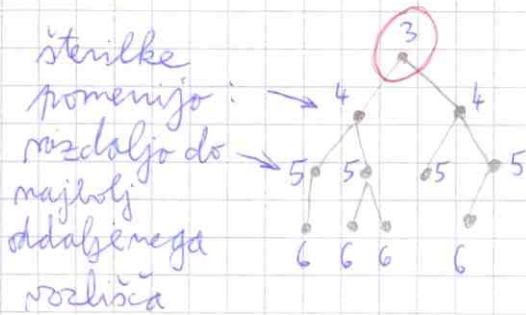 številke
pomenijo :
razdaljo do
najbolj
oddaljenega
vozlišča
3
4 4
5 5 5 5
6 6 6 6